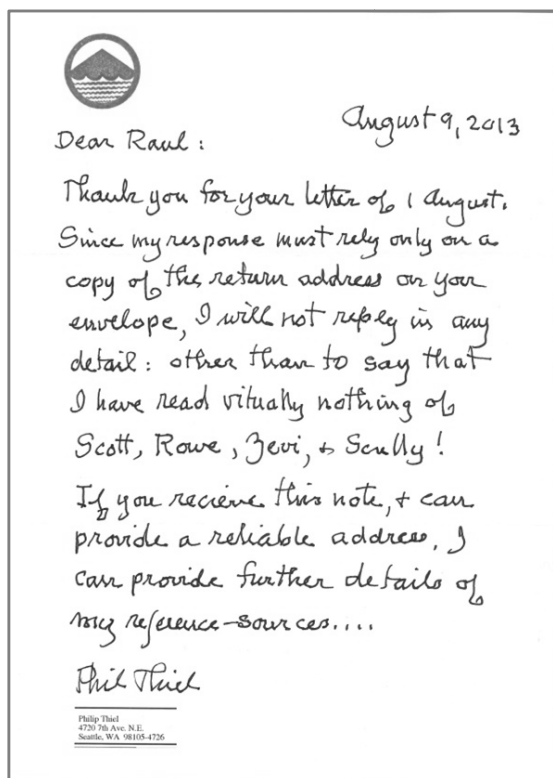 August 9, 2013
Dear Raul:
Thank you for your letter of 1 August.
Since my response must rely only on a
copy of the return address on your
envelope, I will not reply in any
detail: other than to say that
I have read vitually nothing of
Scott, Rowe, Zevi, & Scully!
If you recieve this note, & can
provide a reliable address, I
can provide further details of
my reference-sources....
Phil Thiel
Philip Thiel
4720 7th Ave. N.E.
Seattle, WA 98105-4726